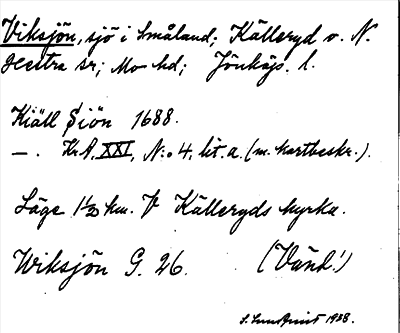 Viksjön, sjö i Småland; Källeryd o. N.
Hestra sr; Mo hd; Jönköp. l.
Kiäll Siön 1688.
—. Kr.A. XXI, N:o 4, lit. a. (m. kartbeskr.).
Läge 1½ km. V Källeryds kyrka.
Wiksjön G. 26. (Vänd!)
S. Lundquist 1928.